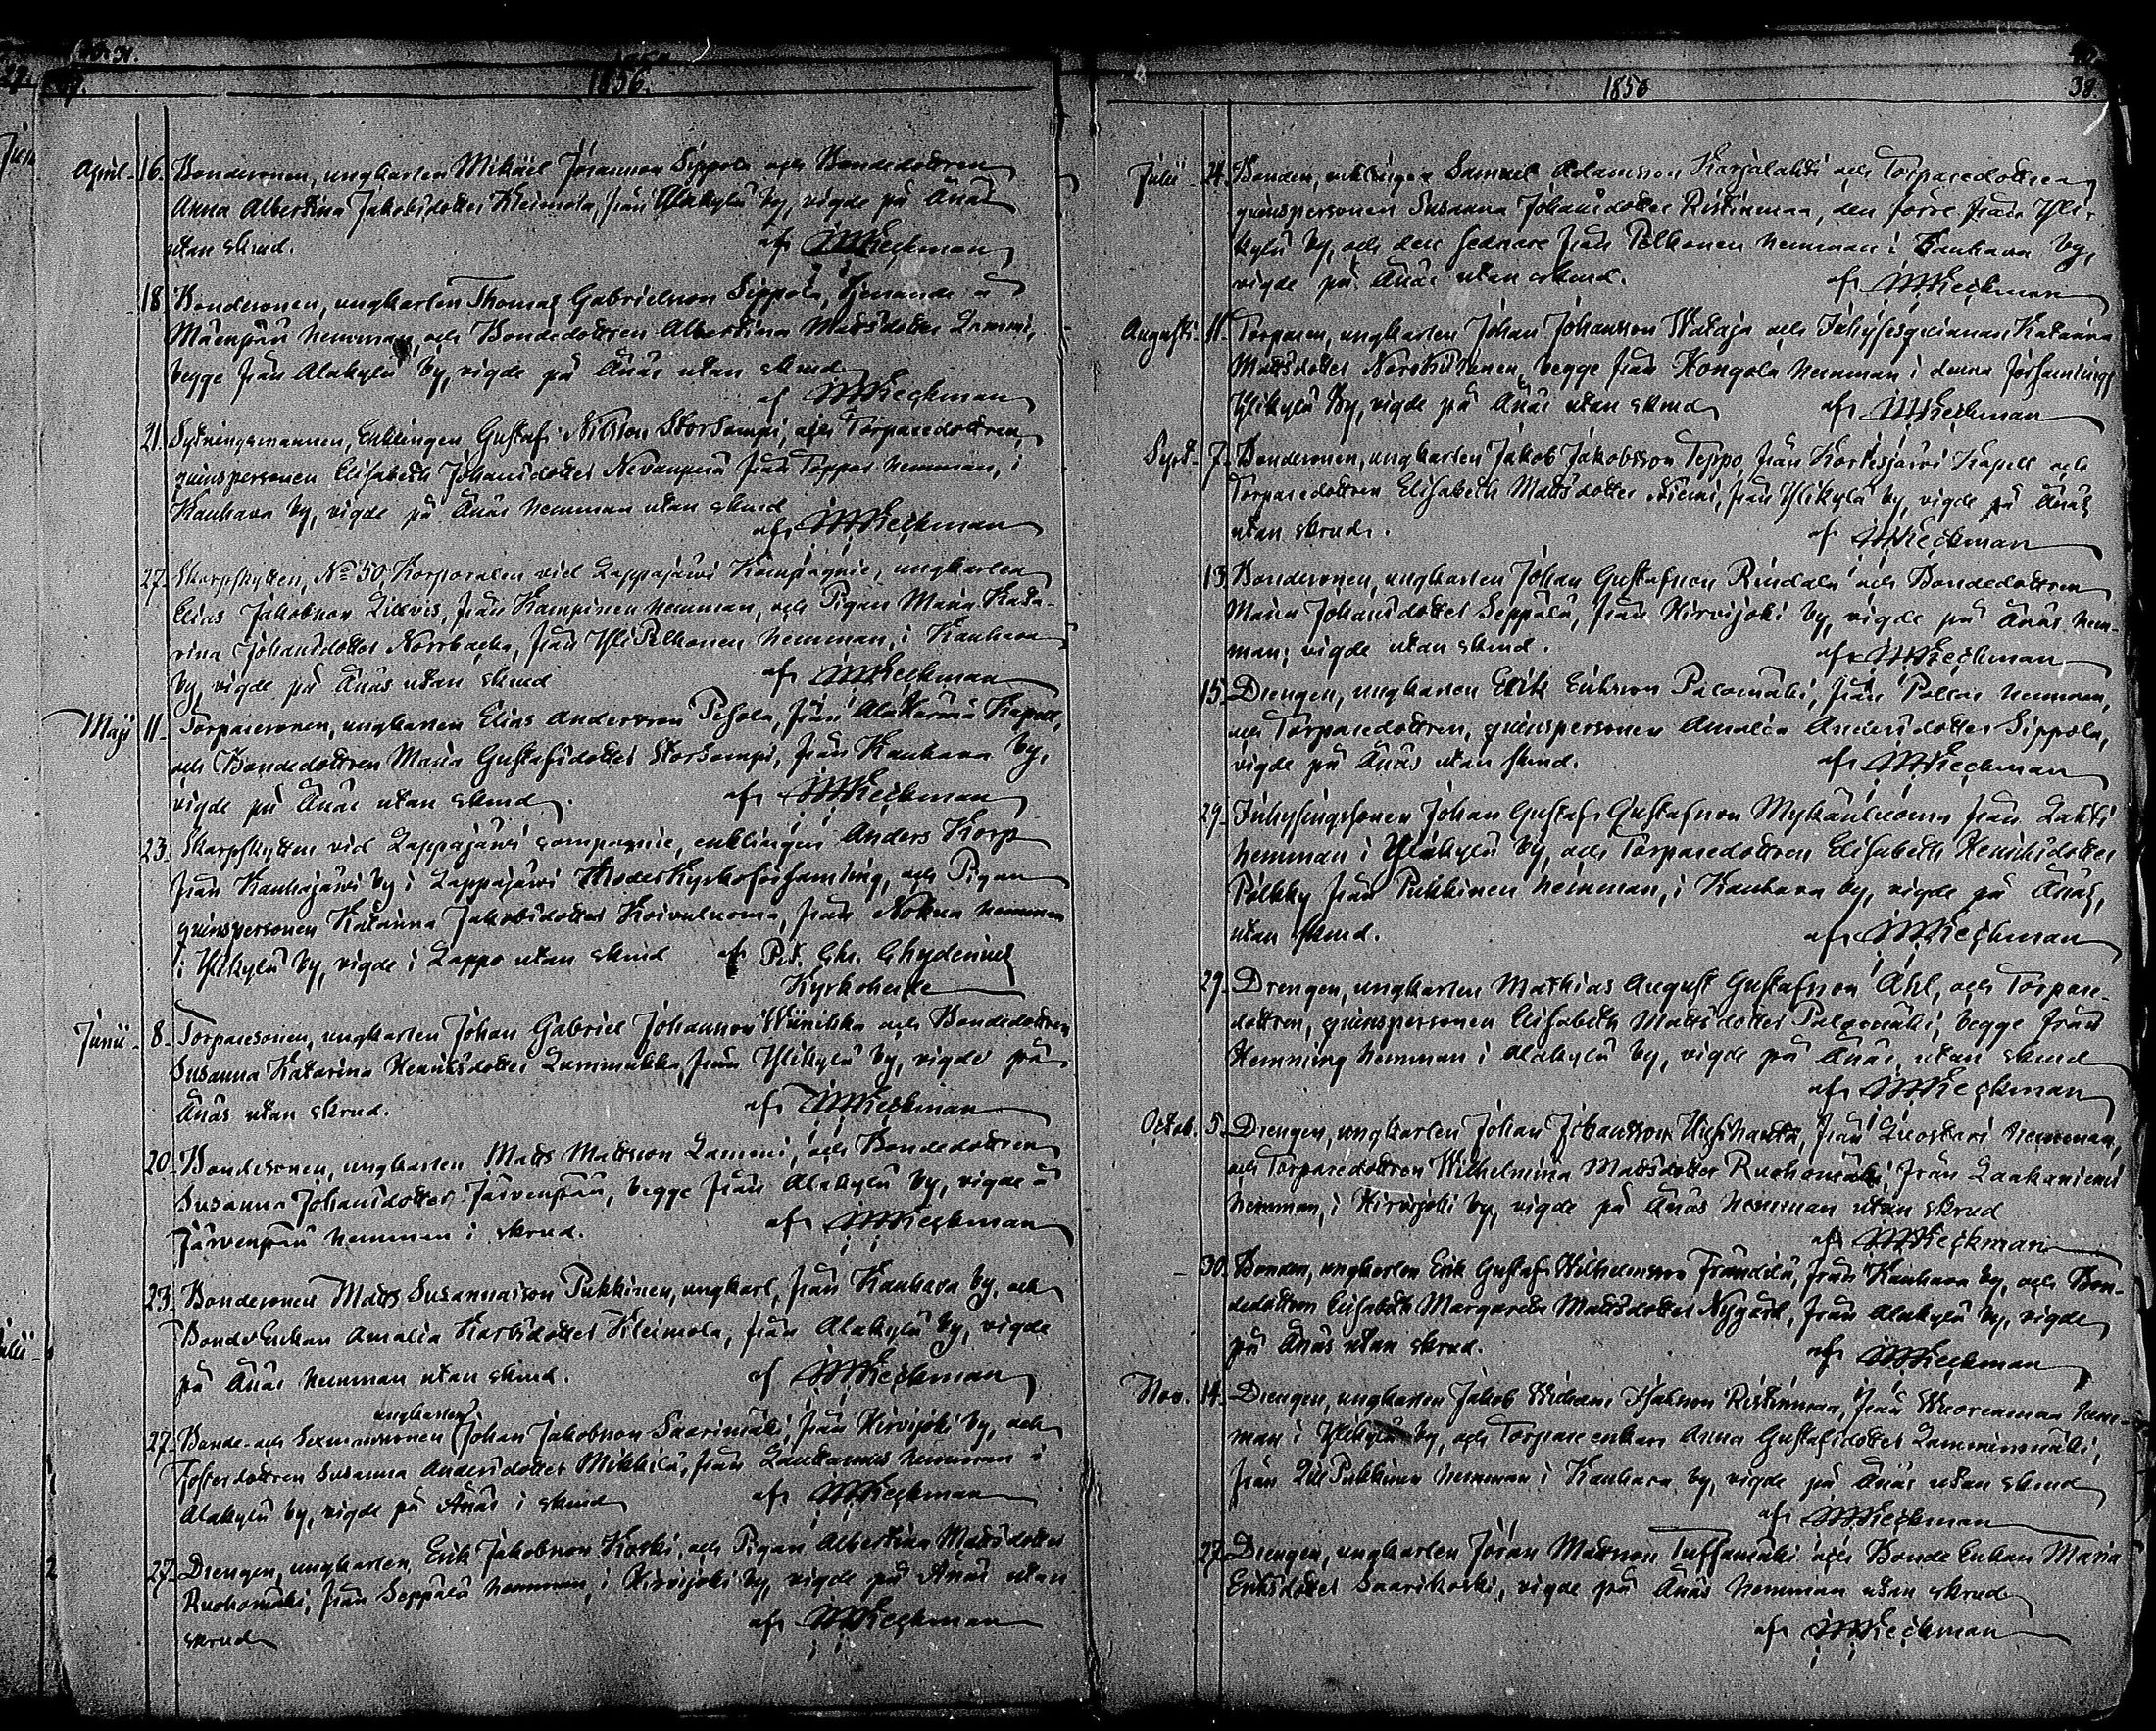 1856.
April 16. Bondesonen, ungkarlen Mikael Johansson Sippola och Bondedottren
Anna Albertina Jakobsdotter Kleimola, från Alakylä by, vigde på Änäs
utan skrud. af W. Keckman
18. Bondesonen, ungkarlen Thomas Gabrielsson Sippola, tjenande å
Mäenpää hemman, och Bondedottren Albertina Mattsdotter Lammi,
begge från Alakylä by, vigde på Änäs utan skrud
af W. Keckman
21. Sytningsmannen, Enklingen Gustaf Nilsson Storsampi, och Torparedottren
qvinspersonen Elisabeth Johansdotter Nevanperä från Toppar hemman, i
Kauhava by, vigde på Änäs hemman utan skrud
af W. Keckman
27. Skarpskytten, No 50, Korporalen vid Lappajärvi Kompagnie, ungkarlen
Elias Jakobsson, från Kampinen hemman, och Pigan Maria Kata-
rina Johansdotter Norrbacka, från Yli Pelkonen hemman, i Kauhava
by, vigde på Änäs utan skrud af W. Keckman
Maji 11. Torparesonen, ungkarlen Elias Andersson Pesola, från Alahärmä Kapell,
och Bondedottren Maria Gustafsdotter Storsampi, från Kauhava by,
vigde på Änäs utan skrud. af W. Keckman
23. Skarpskytten vid Lappajärvi compagnie, enklingen Anders Korp
från Kauhajärvi by i Lappajärvi Moderkyrkoförsamling, och Pigan
qvinspersonen Katarina Jakobsdotter Koivuluoma, från hemman
i Ylikylä by, vigde i Lappo utan skrud af Pet. Chr. Chydenius
Kyrkoherde
Junii 8. Torparesonen, ungkarlen Johan Gabriel Johansson Wiinikka och Bondedottren
Susanna Katarina Henriksdotter Lummukka, från Ylikylä by, vigde på
Änäs utan skrud. af W. Keckman
20. Bondesonen, ungkarlen Matts Mattsson Lammi, och Bondedottren
Susanna Johansdotter Järvenpää, begge från Alakylä by, vigde å
Järvenpää hemman i skrud. af W. Keckman
23. Bondesonen Matts Susannason Pukkinen, ungkarl, från Kauhava by, och
Bonde Enkan Amalia Karlsdotter Kleimola, från Alakylä by, vigde
på Änäs hemman utan skrud. af W. Keckman
ungkarlen
27. Bonde- och Sexmannsonen Johan Jakobsson Saarimäki, från Hirvijoki by, och
Fosterdottren Susanna Andersdotter Mikkilä, från hemman i
Alakylä by, vigde på Änäs i skrud af W. Keckman
27. Drengen, ungkarlen, Erik Jakobsson Koski, och Pigan Albertina Mattsdotter
Ruohomäki, från Seppälä hemman, i Hirvijoki by, vigde på Änäs utan
skrud af W. Keckman
1856
38.
Julii 24. Bonden, enklingen Samuel Adamsson Karjalahti och Torparedottren
qvinspersonen Susanna Johansdotter Ristinmaa, den förre från Yli-
kylä by, och den sednare från Pelkonen hemman i Kauhava by,
vigde på Änäs utan skrud. af W. Keckman
Augusti 11. Torparen, ungkarlen Johan Johansson Wataja och Inhyseqvinnan Katarina
Mattsdotter, begge från Kongola hemman i denna församlings
Ylikylä by, vigde på Änäs utan skrud af W. Keckman
Sept. 7. Bondesonen, ungkarlen Jakob Jakobsson Teppo, från Kortesjärvi Kapell och
Torparedottren Elisabeth Mattsdotter Niemi, från Ylikylä by, vigde på Änäs
utan skrud. af W. Keckman
13. Bondesonen, ungkarlen Johan Gustafsson Rindala och Bondedottren
Maria Johansdotter Seppälä, från Hirvijoki by, vigde på Änäs hem-
man, vigde utan skrud. af W. Keckman
15. Drengen, ungkarlen Erik Eriksson Palomäki, från hemman,
och Torparedottren, qvinspersonen Amalia Andersdotter Sippola,
vigde på Änäs utan skrud. af W. Keckman
29. Inhysingssonen Johan Gustaf Gustafsson Mykänluoma från Lahti
hemman i Ylikylä by, och Torparedottren Elisabeth Henriksdotter
Pölkky från Pukkinen hemman, i Kauhava by, vigde på Änäs,
utan skrud. af W. Keckman
29. Drengen, ungkarlen Mathias August Gustafsson Åhl, och Torpare-
dottren, qvinspersonen Elisabeth Mattsdotter Palomäki, begge från
Hemming hemman i Alakylä by, vigde på Änäs, utan skrud
af W. Keckman
Octob. 5. Drengen, ungkarlen Johan Johansson, från Luostari hemman,
och Torparedottren Wilhelmina Mattsdotter Ruohomäki, från Laakaniemi
hemman, i Hirvijoki by, vigde på Änäs hemman utan skrud
af W. Keckman
30. Bonden, ungkarlen Erik Gustaf Wilhelmsson Frändilä, från Kauhava by, och Bon-
dedottren Elisabeth Margareta Mattsdotter Nygård, från Alakylä by, vigde
på Änäs utan skrud. af W. Keckman
Nov. 14. Drengen, ungkarlen Jakob Ristinmaa, från Wuorenmaa hem-
man i Ylikylä by, och Torpareenkan Anna Gustafsdotter Lamminmäki,
från Lill Pukkinen hemman i Kauhava by, vigde på Änäs utan skrud
af W. Keckman
27. Drengen, ungkarlen Johan Mattsson Tussamäki och Bonde Enkan Maria
Eriksdotter Saarikoski, vigde på Änäs hemman utan skrud
af W. Keckman